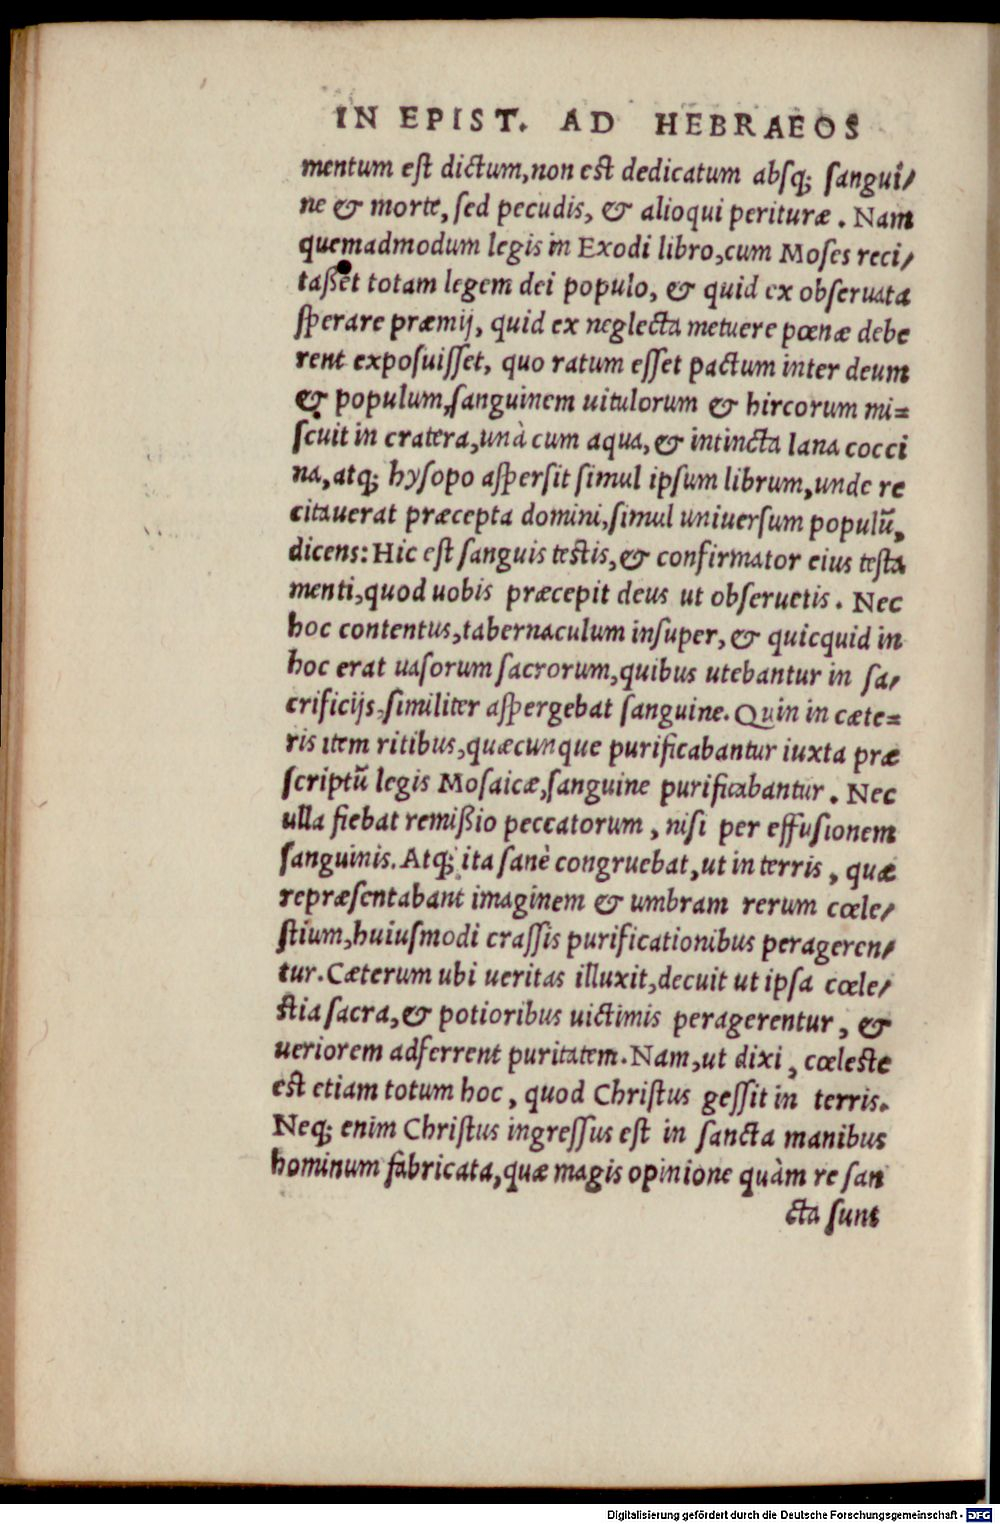 IN EPIST. AD HEBRAEOS
mentum est dictum, non est dedicatum absq; sangui/
ne & morte, sed pecudis, & alioqui perituræ. Nam
quemadmodum legis in Exodi libro, cum Moses reci/
taßet totam legem dei populo, & quid ex obseruata
sperare præmij, quid ex neglecta metuere pœnæ debe
rent exposuisset, quo ratum esset pactum inter deum
& populum, sanguinem uitulorum & hircorum mi=
scuit in cratera, unà cum aqua, & intincta lana cocci
na, atq; hysopo aspersit simul ipsum librum, unde re
citauerat præcepta domini, simul uniuersum populũ,
dicens: Hic est sanguis testis, & confirmator eius testa
menti, quod uobis præcepit deus ut obseruetis. Nec
hoc contentus, tabernaculum insuper, & quicquid in
hoc erat uasorum sacrorum, quibus utebantur in sa/
crificijs, similiter aspergebat sanguine. Quin in cæte=
ris item ritibus, quæcunque purificabantur iuxta præ
scriptũ legis Mosaicæ, sanguine purificabantur. Nec
ulla fiebat remißio peccatorum, nisi per effusionem
sanguinis. Atq; ita sanè congruebat, ut in terris, quæ
repræsentabant imaginem & umbram rerum cœle/
stium, huiusmodi crassis purificationibus perageren/
tur. Cæterum ubi ueritas illuxit, decuit ut ipsa cœle/
stia sacra, & potioribus uictimis peragerentur, &
ueriorem adferrent puritatem. Nam, ut dixi, cœleste
est etiam totum hoc, quod Christus gessit in terris.
Neq; enim Christus ingressus est in sancta manibus
hominum fabricata, quæ magis opinione quàm re san
cta sunt
Digitalisierung gefördert durch die Deutsche Forschungsgemeinschaft - DFG